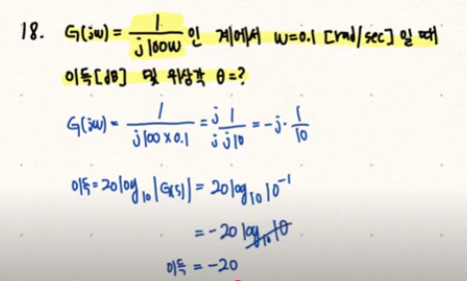 18. G(jw) = 1/j100w 인 계에서 w=0.1 [rad/sec] 일 때
이득[dB] 및 위상각 θ=?
G(jw) = 1/j100×0.1 = j 1/j j10 = -j·1/10
이득 = 20log₁₀|G(s)| = 20log₁₀10⁻¹
= -20 log₁₀10
이득 = -20